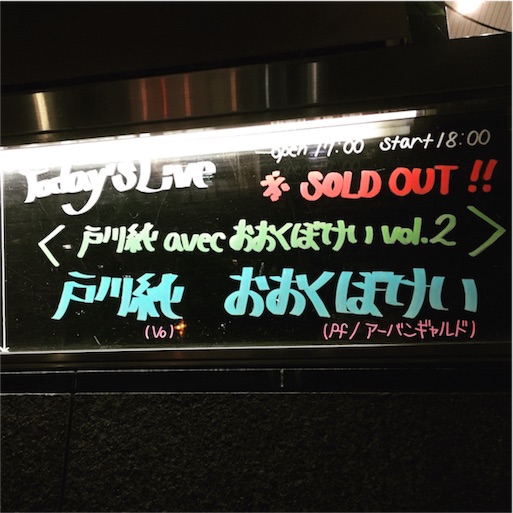 open 17:00 start 18:00
Today's Live
※ SOLD OUT !!
＜戸川純 avec おおくぼけい vol.2＞
戸川純 おおくぼけい
(Vo) (Pf/アーバンギャルド)